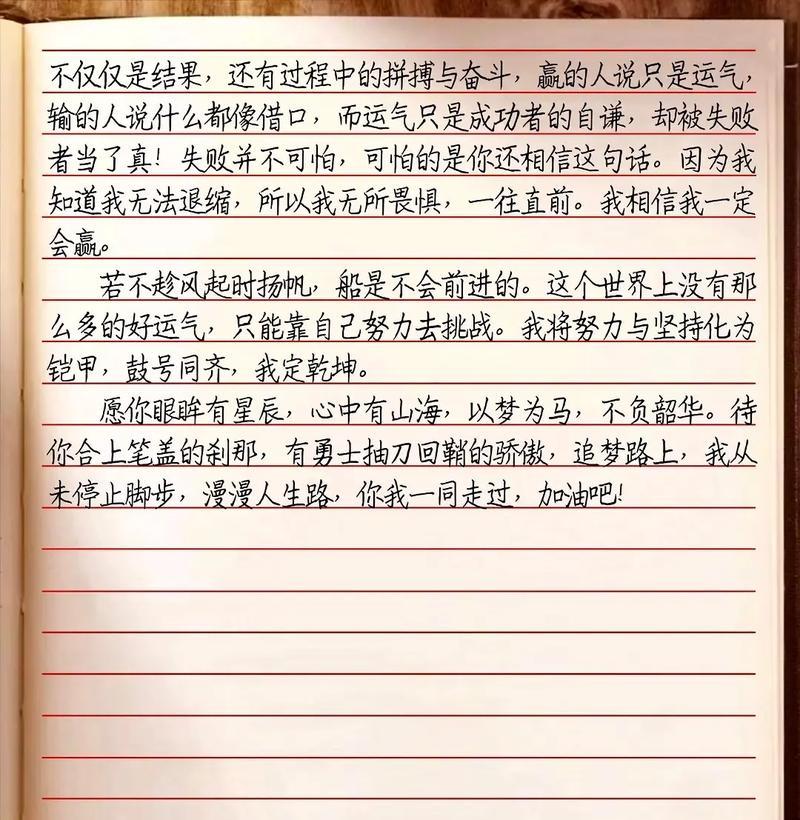 不仅仅是结果，还有过程中的拼搏与奋斗，赢的人说只是运气，
输的人说什么都像借口，而运气只是成功者的自谦，却被失败
者当了真！失败并不可怕，可怕的是你还相信这句话。因为我
知道我无法退缩，所以我无所畏惧，一往直前。我相信我一定
会赢。
若不趁风起时扬帆，船是不会前进的。这个世界上没有那
么多的好运气，只能靠自己努力去挑战。我将努力与坚持化为
铠甲，鼓号同齐，我定乾坤。
愿你眼眸有星辰，心中有山海，以梦为马，不负韶华。待
你合上笔盖的刹那，有勇士抽刀回鞘的骄傲，追梦路上，我从
未停止脚步，漫漫人生路，你我一同走过，加油吧！